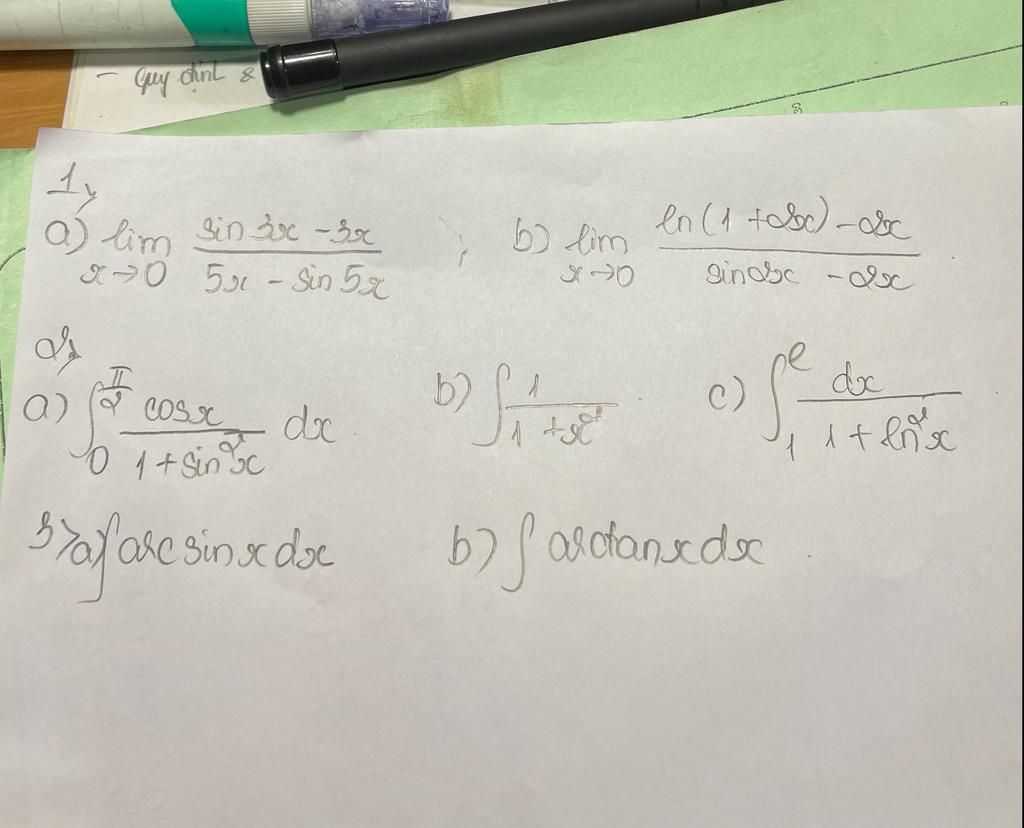 - Quy định &
1,
a) lim x→0 (sin 3x - 3x)/(5x - sin 5x) ; b) lim x→0 (ln(1 + 2x) - 2x)/(sin 2x - 2x)
2,
a) ∫₀^(π/2) cosx/(1 + sin²x) dx b) ∫ 1/(1 + x²) c) ∫₁^e dx/(1 + ln²x)
3> a) ∫ arcsinxdx b) ∫ arctanxdx